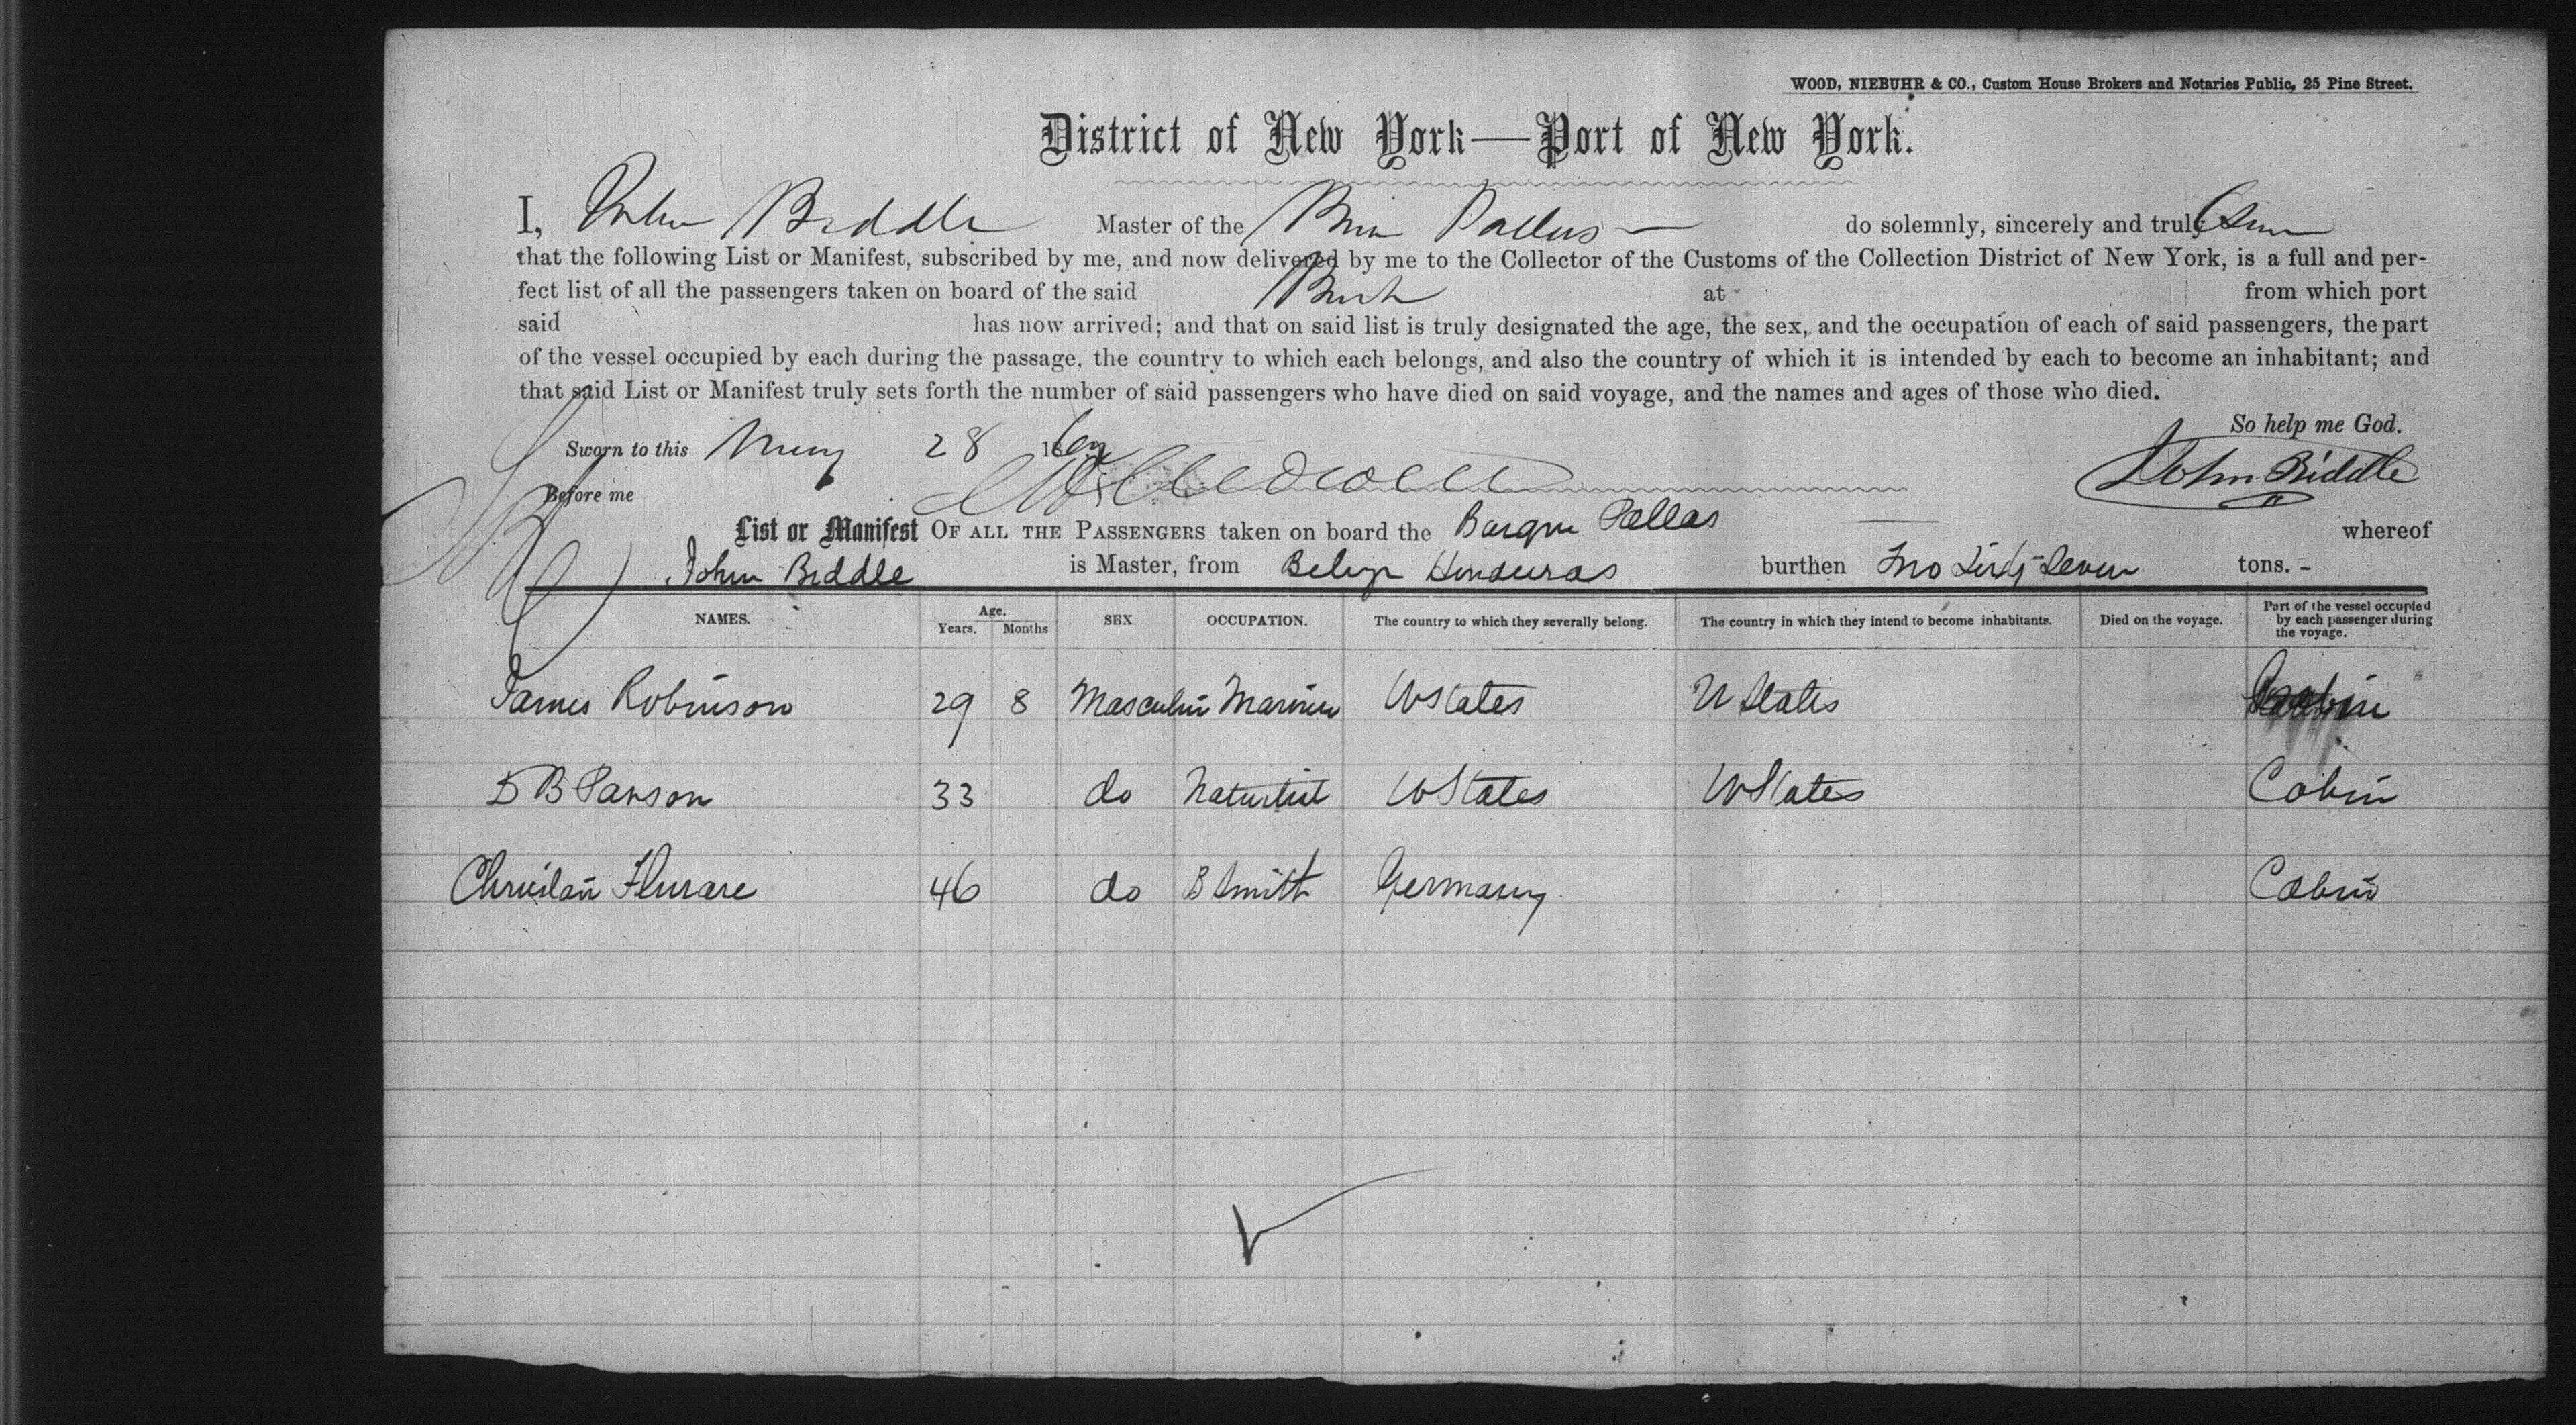 WOOD, NIEBUHR & CO., Custom House Brokers and Notaries Public, 25 Pine Street.
District of New York—Port of New York.
I, John Biddle Master of the Pallas — do solemnly, sincerely and truly
that the following List or Manifest, subscribed by me, and now delivered by me to the Collector of the Customs of the Collection District of New York, is a full and per-
fect list of all the passengers taken on board of the said at from which port
said has now arrived; and that on said list is truly designated the age, the sex, and the occupation of each of said passengers, the part
of the vessel occupied by each during the passage, the country to which each belongs, and also the country of which it is intended by each to become an inhabitant; and
that said List or Manifest truly sets forth the number of said passengers who have died on said voyage, and the names and ages of those who died.
So help me God.
Sworn to this 28 18
John Biddle
Before me
List or Manifest OF ALL THE PASSENGERS taken on board the Barque Pallas whereof
John Biddle is Master, from Honduras burthen tons. -
NAMES. Age. Years. Months SEX OCCUPATION. The country to which they severally belong. The country in which they intend to become inhabitants. Died on the voyage. Part of the vessel occupied by each passenger during the voyage.
James Robinson 29 8 Masculin UStates U States Cabin
B 33 do UStates UStates Cabin
46 do B Smith Germany Cabin